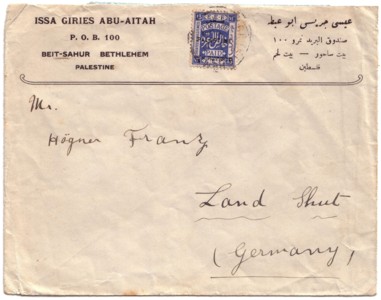 ISSA GIRIES ABU-AITAH
P. O. B. 100
BEIT-SAHUR BETHLEHEM
PALESTINE
عيسى جريس ابو عيطه
صندوق البريد نمرو ١٠٠
بيت ساحور — بيت لحم
فلسطين
POSTAGE
خالص
PAID
Mr.
Högner Franz
Land Shut
(Germany)